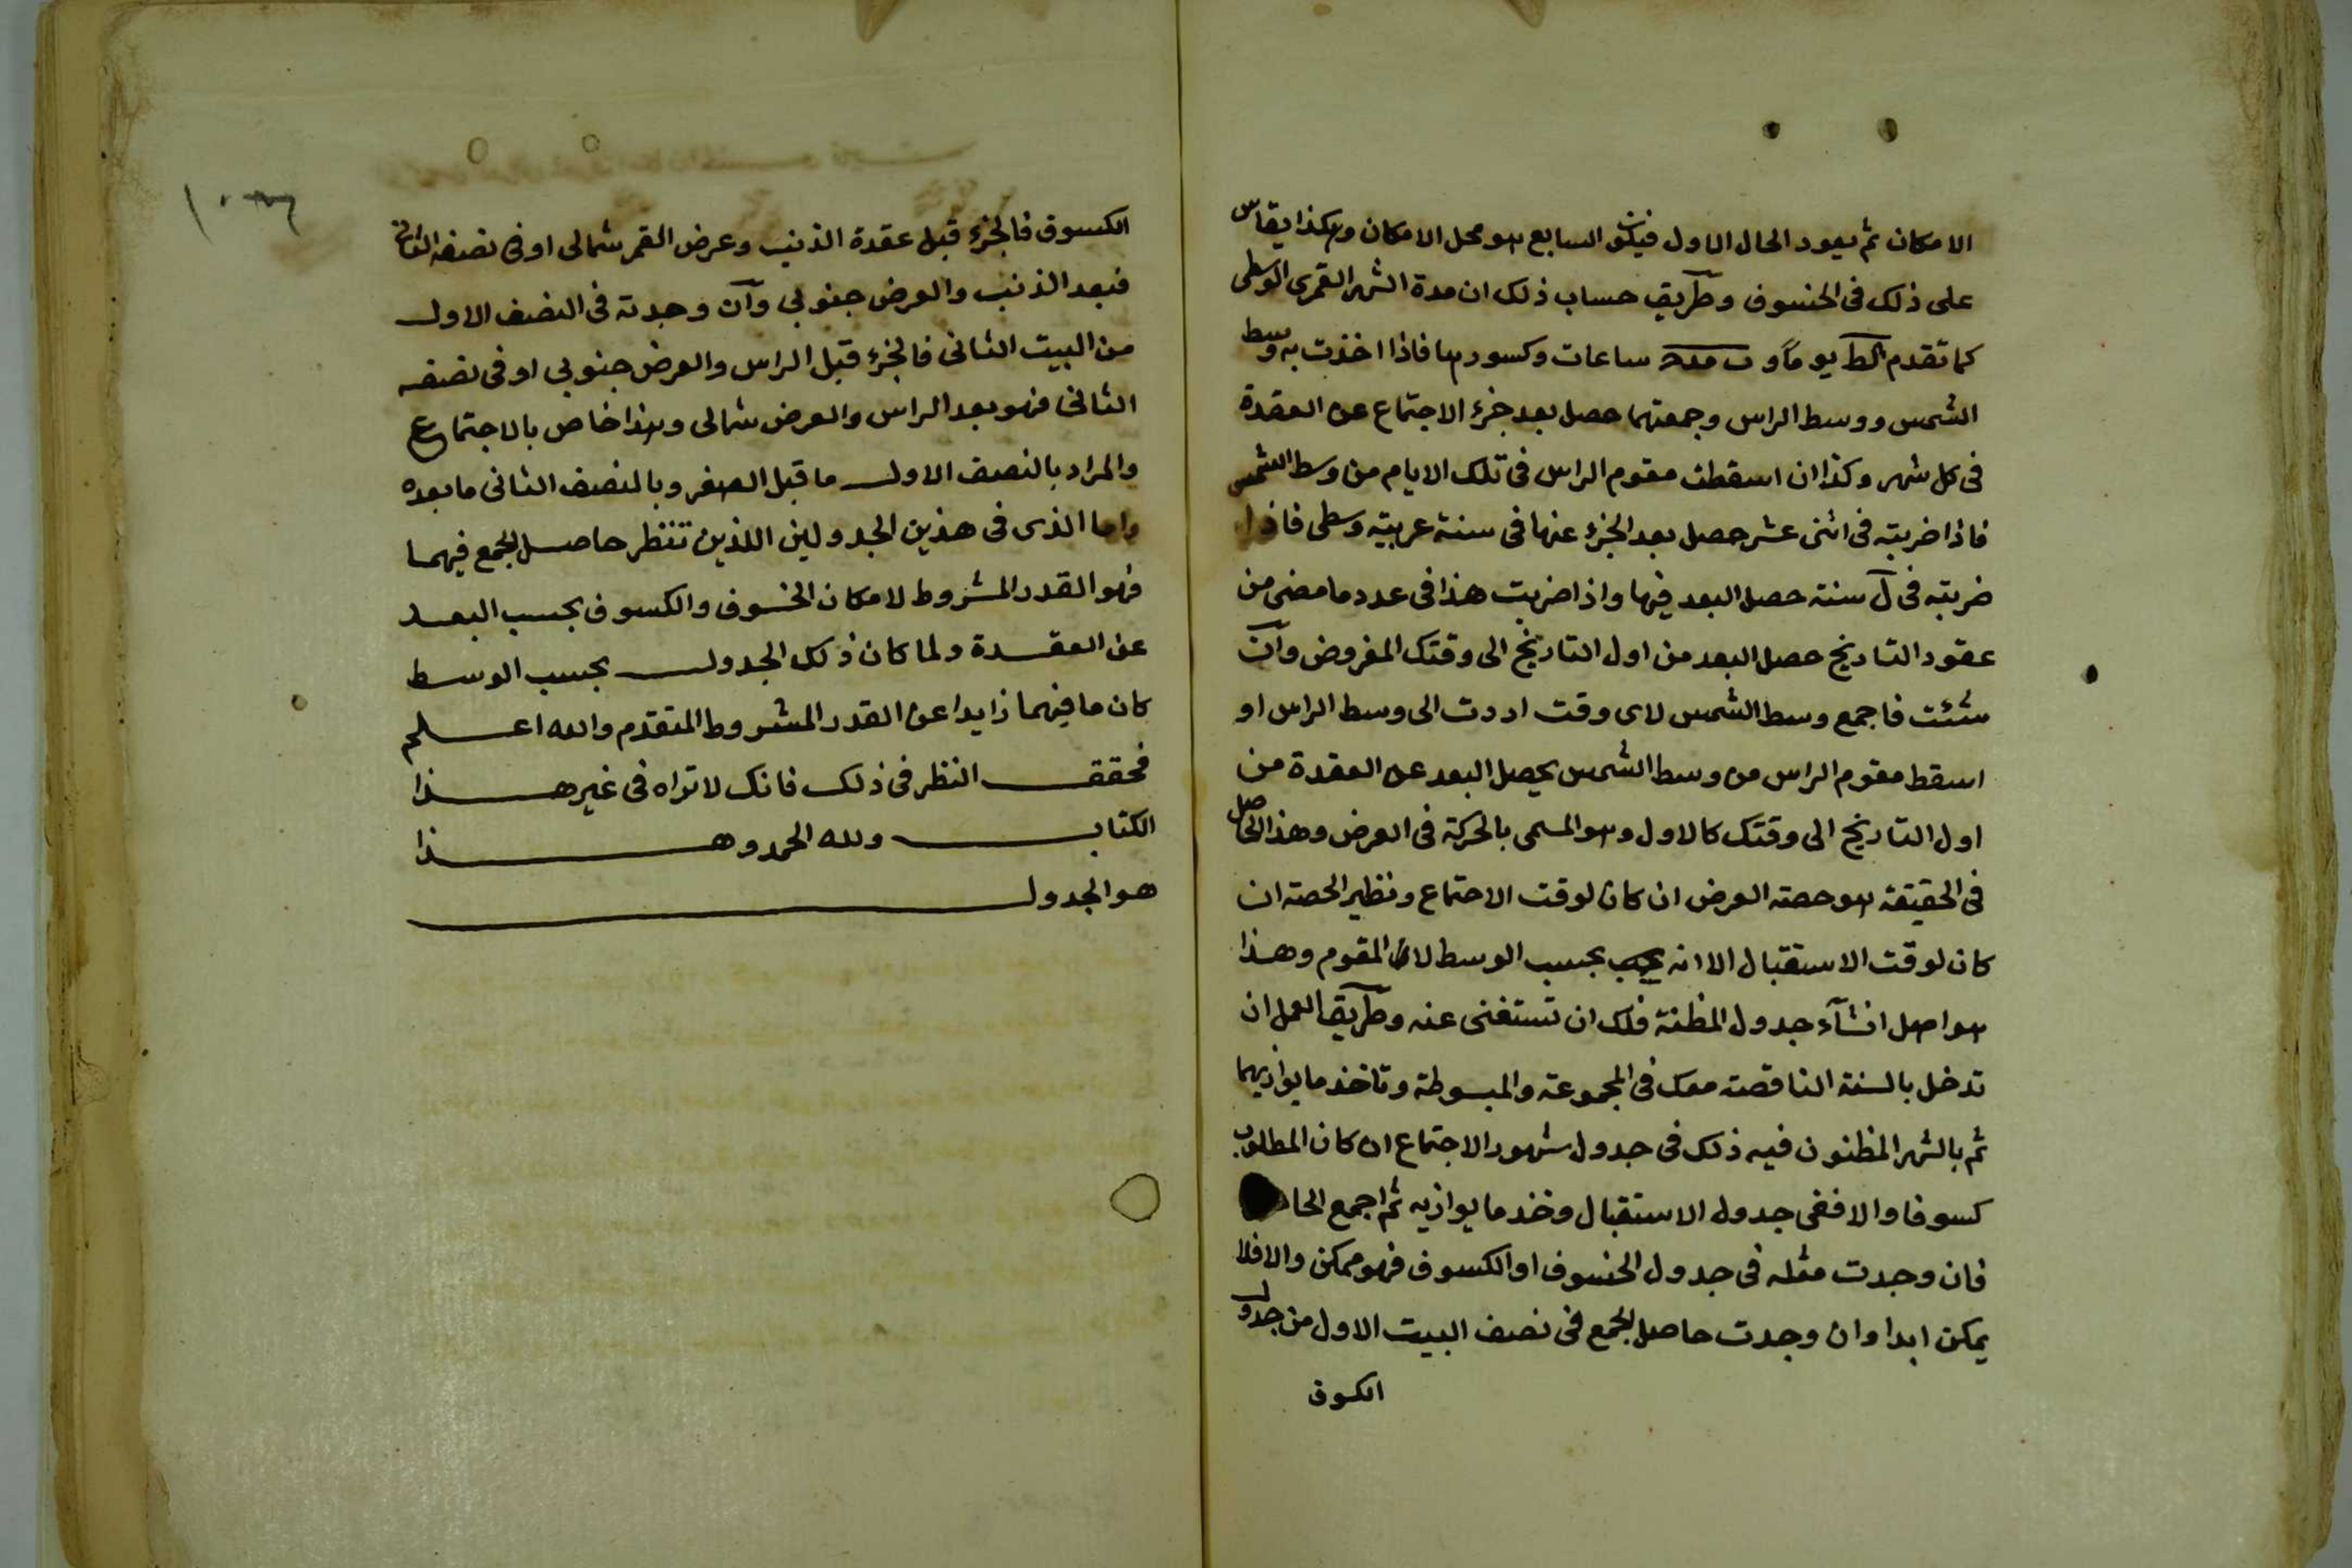 الامكان ثم يعود الحال الاول فيكون السابع هو محل الامكان وهكذا يقاس
على ذلك فى الخسوف وطريق حساب ذلك ان مدة الشهر القمرى الوسطى
كما تقدم كط يوما و ساعات وكسورها فاذا اخذت به وسط
الشمس ووسط الراس وجمعتهما حصل بعد جزء الاجتماع عن العقدة
فى كل شهر وكذا ان اسقطت مقوم الراس فى تلك الايام من وسط الشمس
فاذا ضربته فى اثنى عشر حصل بعد الجزء عنها فى سنة عربية وسطى فاذا
ضربته فى ل سنة حصل البعد فيها واذا ضربت هذا فى عدد ما مضى من
عقود التاريخ حصل البعد من اول التاريخ الى وقتك المفروض وان
شئت فاجمع وسط الشمس لاى وقت اردت الى وسط الراس او
اسقط مقوم الراس من وسط الشمس يحصل البعد عن العقدة من
اول التاريخ الى وقتك كالاول وهو المسمى بالحركة فى العرض وهذا الحاصل
فى الحقيقة هو حصة العرض ان كان لوقت الاجتماع ونظير الحصة ان
كان لوقت الاستقبال الا انه بحسب الوسط لا المقوم وهذا
هو اصل انشآء جدول المظنة فلك ان تستغنى عنه وطريق العمل ان
تدخل بالسنة الناقصة معك فى المجموعة والمبسوطة وتاخذ ما يوازيهما
ثم بالشهر المظنون فيه ذلك فى جدول شهور الاجتماع ان كان المطلوب
كسوفا والا ففى جدول الاستقبال وخذ ما يوازيه ثم اجمع
فان وجدت مثله فى جدول الخسوف او الكسوف فهو ممكن والا فلا
يمكن ابدا وان وجدت حاصل الجمع فى نصف البيت الاول من جدول
الكسوف
الكسوف فالجزء قبل عقدة الذنب وعرض القمر شمالى او فى نصفه الثانى
فبعد الذنب والعرض جنوبى وان وجدته فى النصف الاول
من البيت الثانى فالجزء قبل الراس والعرض جنوبى او فى نصفه
الثانى فهو بعد الراس والعرض شمالى وهذا خاص بالاجتماع
والمراد بالنصف الاول ما قبل الصفر وبالنصف الثانى ما بعده
واما الذى فى هذين الجدولين اللذين تنظر حاصل الجمع فيهما
فهو القدر المشروط لامكان الخسوف والكسوف بحسب البعد
عن العقدة ولما كان ذلك الجدول بحسب الوسط
كان ما فيهما زايدا عن القدر المشروط المتقدم والله اعلم
فحقق النظر فى ذلك فانك لا تراه فى غير هذا
الكتاب ولله الحمد وهذا
هو الجدول